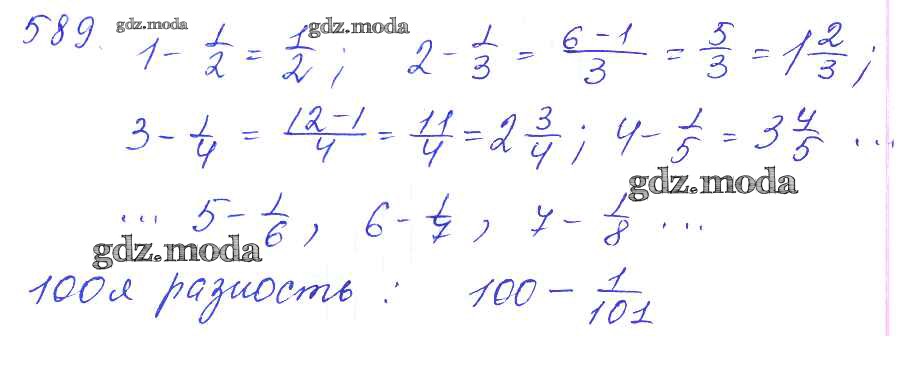 589. gdz.moda 1 - 1/2 = 1/2; gdz.moda 2 - 1/3 = (6-1)/3 = 5/3 = 1 2/3;
3 - 1/4 = (12-1)/4 = 11/4 = 2 3/4; 4 - 1/5 = 3 4/5 ...
gdz.moda
... 5 - 1/6, 6 - 1/7, 7 - 1/8 ...
gdz.moda
100я разность: 100 - 1/101